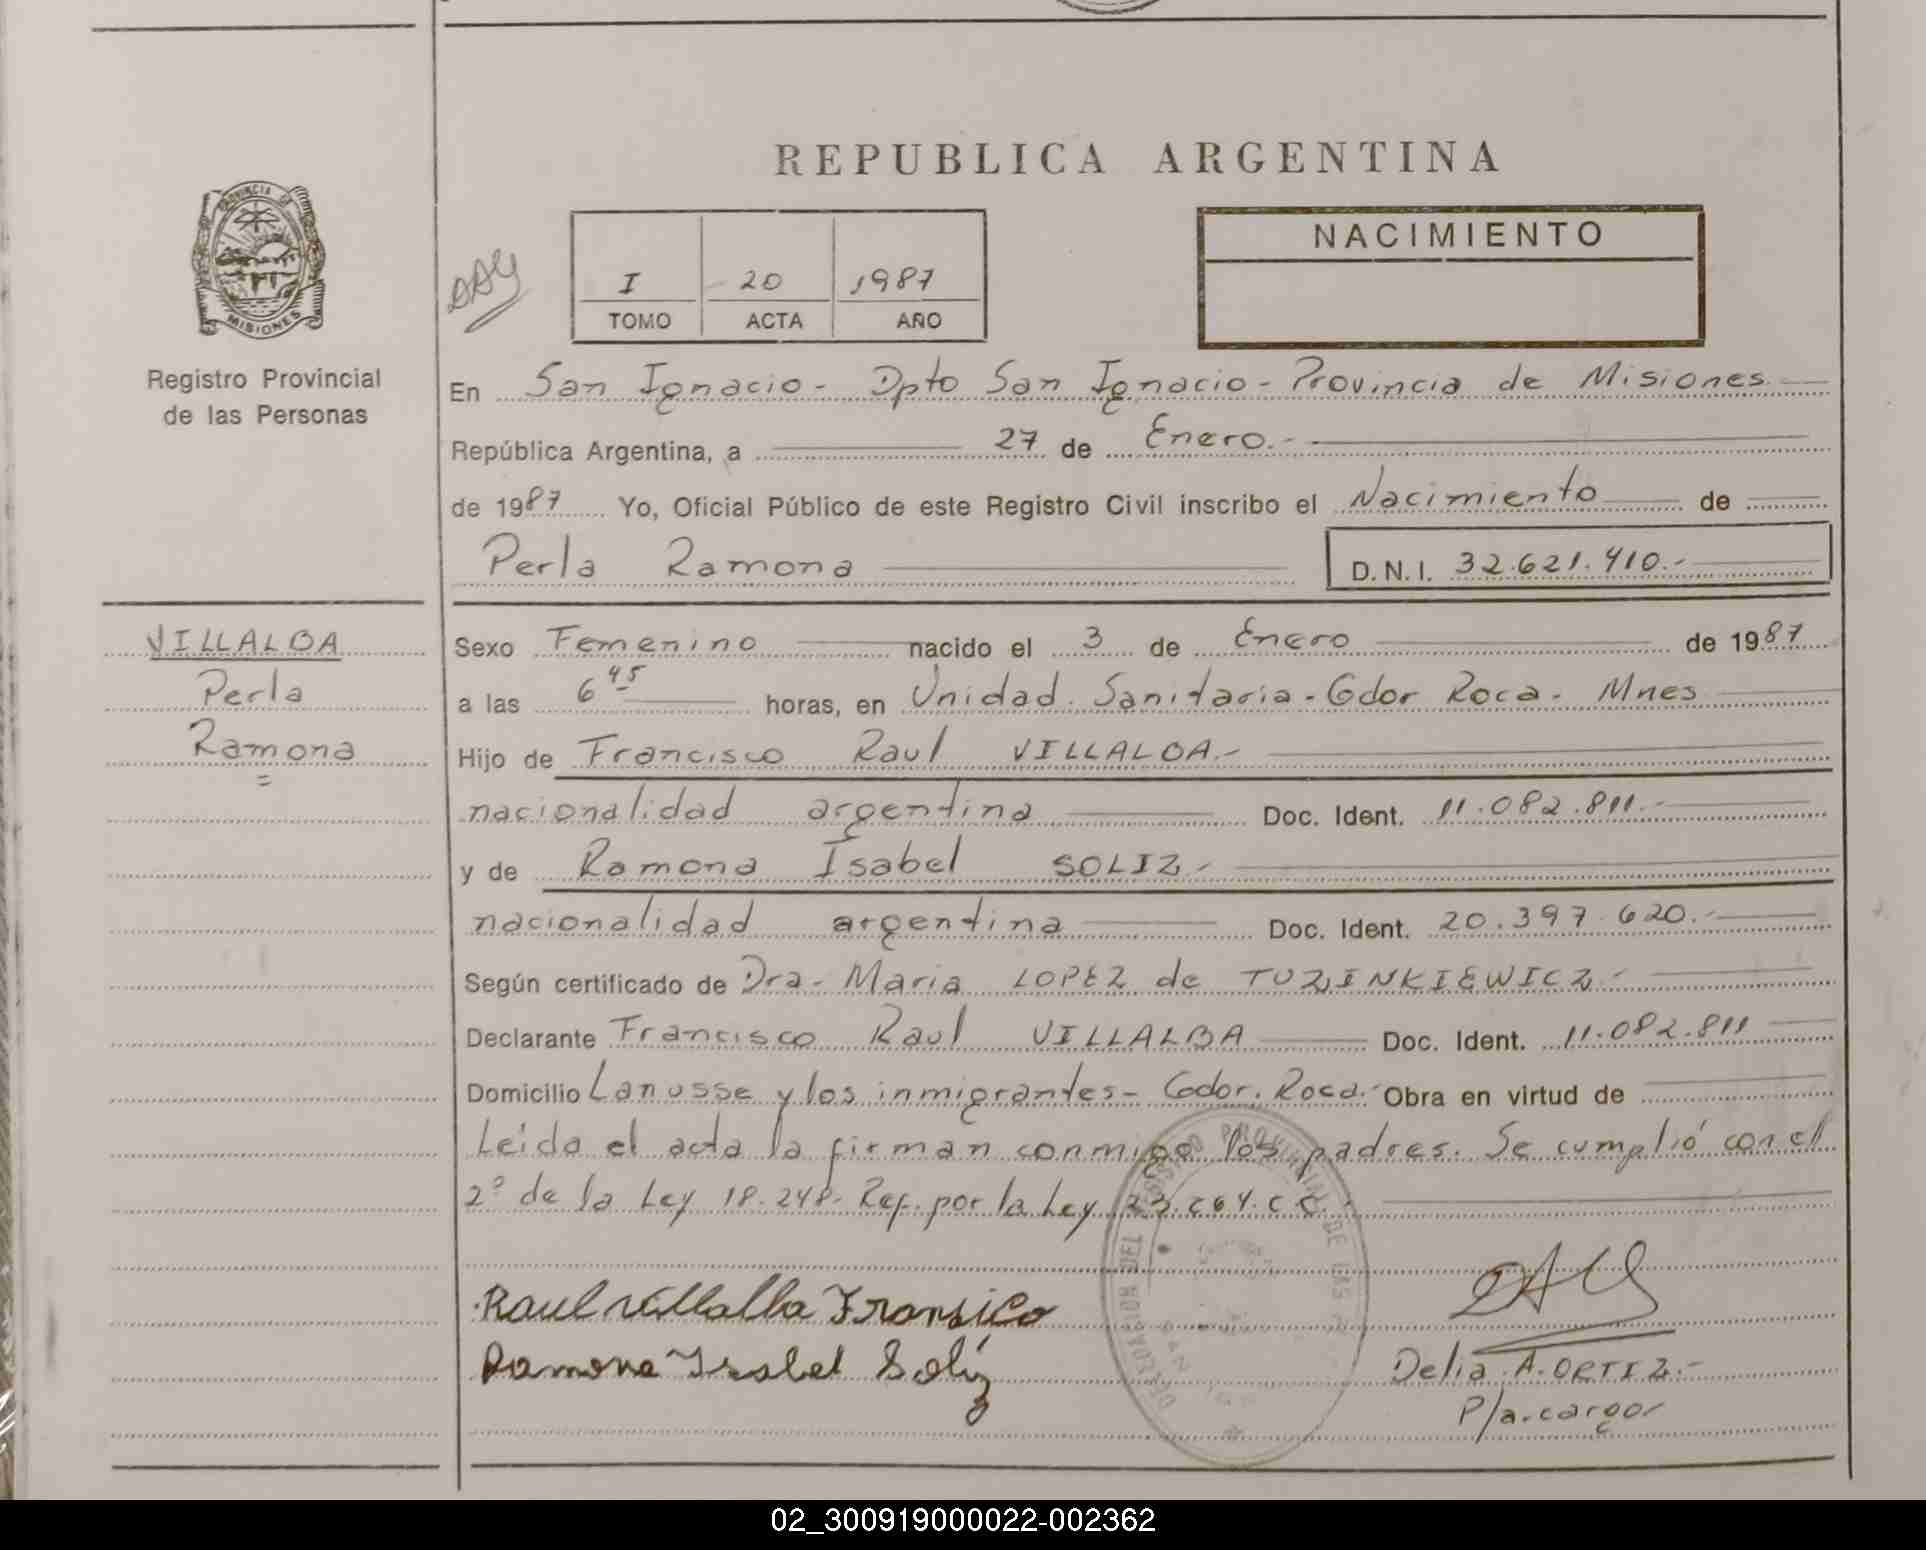 REPUBLICA ARGENTINA
PROVINCIA DE
MISIONES
Registro Provincial
de las Personas
I 20 1987
TOMO ACTA AÑO
NACIMIENTO
En San Ignacio - Dpto San Ignacio - Provincia de Misiones.
República Argentina, a 27 de Enero.-
de 1987 Yo, Oficial Público de este Registro Civil inscribo el Nacimiento de
Perla Ramona D.N.I. 32.621.410.-
VILLALBA
Perla
Ramona
Sexo Femenino nacido el 3 de Enero de 1987
a las 6 45 horas, en Unidad Sanitaria - Gdor Roca - Mnes
Hijo de Francisco Raul VILLALBA.-
nacionalidad argentina Doc. Ident. 11.082.811.-
y de Ramona Isabel SOLIZ.-
nacionalidad argentina Doc. Ident. 20.397.620.-
Según certificado de Dra. Maria LOPEZ de TUZINKIEWICZ.-
Declarante Francisco Raul VILLALBA Doc. Ident. 11.082.811
Domicilio Lanusse y los inmigrantes - Gdor. Roca.- Obra en virtud de
Leida el acta la firman conmigo los padres. Se cumplió con el
2° de la Ley 18.248. Ref. por la Ley 23.264.
Raul Villalba Fransico
Ramona Isabel Solíz
Delia A. ORTIZ.-
P/a. cargo
02_300919000022-002362